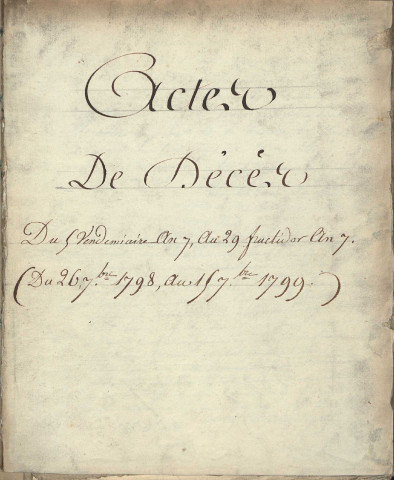 Actes
De Décès
Du 5 Vendemiaire An 7, Au 29 fructidor An 7.
(Du 26 7.bre 1798, au 15 7.bre 1799.)